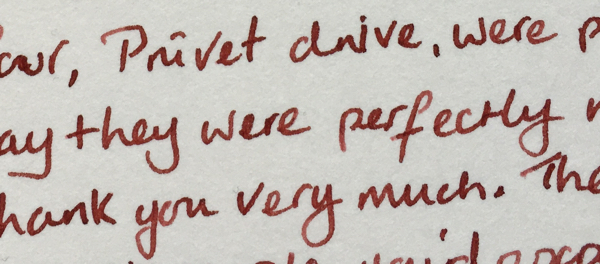 our, Privet drive, were p
ay they were perfectly n
hank you very much. The